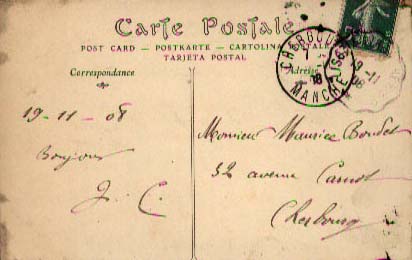 Carte Postale
POST CARD – POSTKARTE – CARTOLINA POSTALE
TARJETA POSTAL
Correspondance
Adresse
CHERBOURG
MANCHE
19-11
08
19-11-08
Bonjour
J. C.
Monsieur Maurice Boudet
32 avenue Carnot
Cherbourg